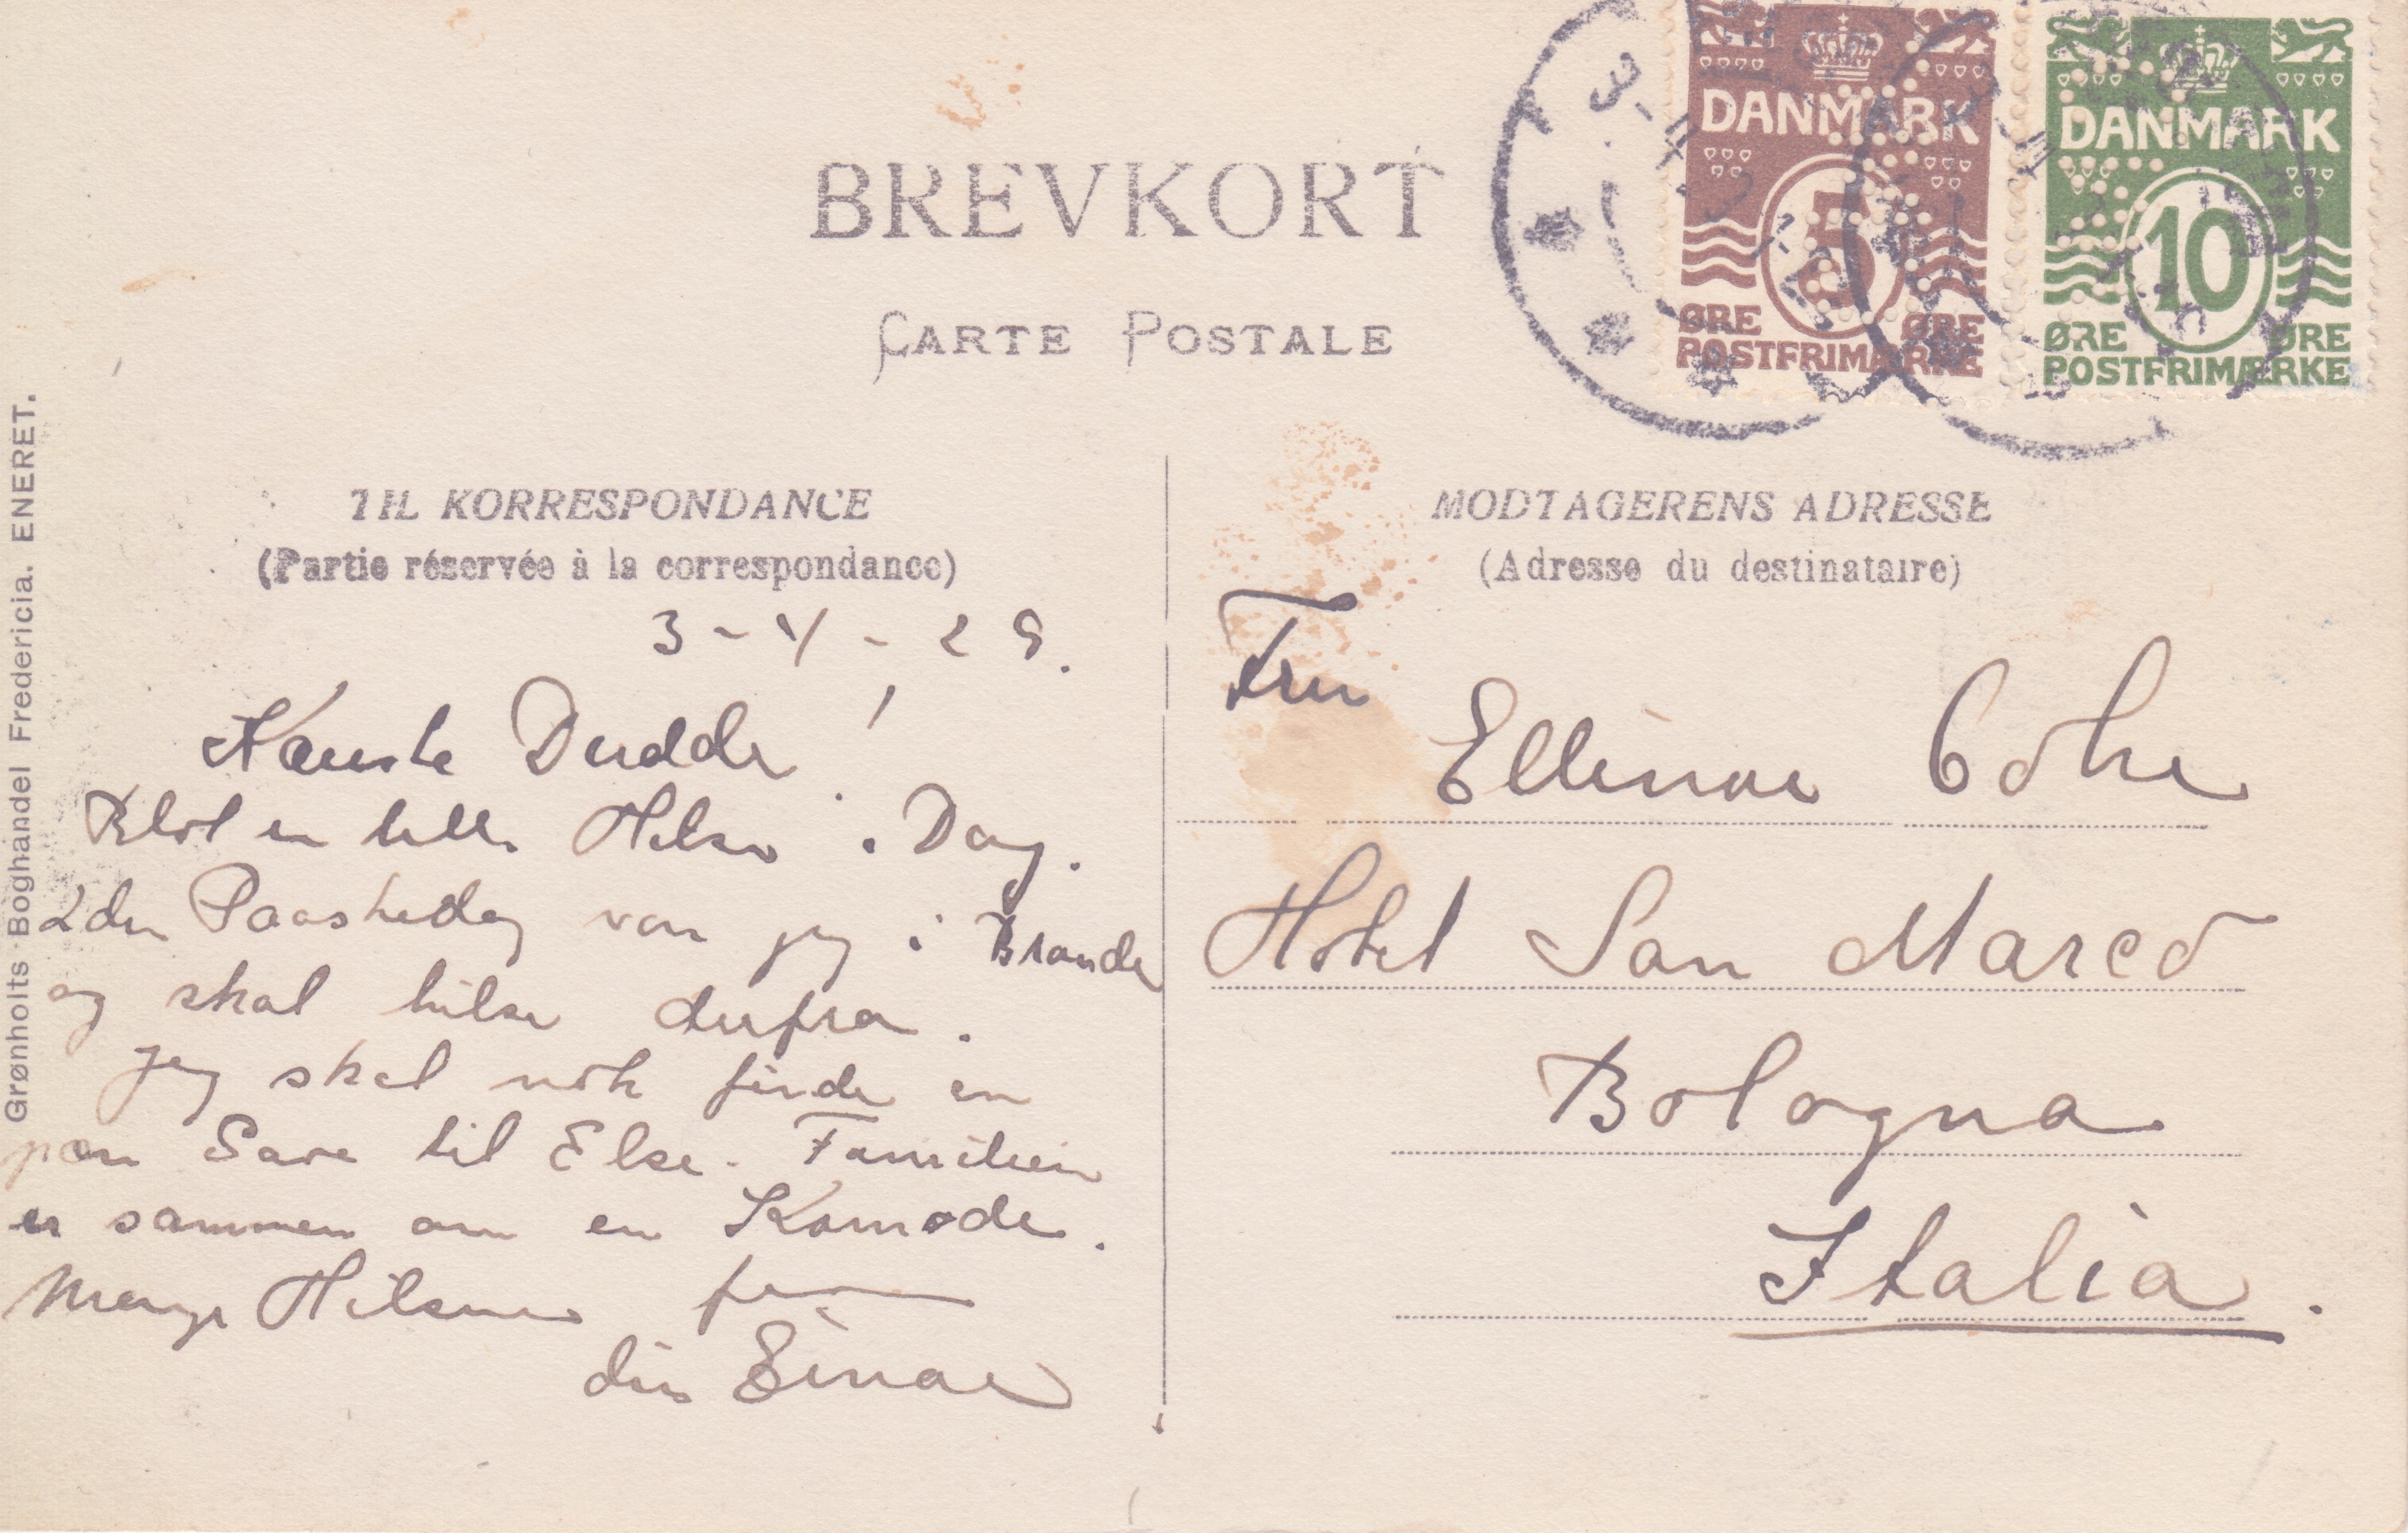 BREVKORT
CARTE POSTALE
DANMARK
5
ØRE ØRE
POSTFRIMÆRKE
DANMARK
10
ØRE ØRE
POSTFRIMÆRKE
Grønholts Boghandel Fredericia. ENERET.
TIL KORRESPONDANCE
(Partie réservée à la correspondance)
3-4-29.
Kæreste Dudde!
Blot en lille Hilsen i Dag.
2den Paaskedag var jeg i Brande
og skal hilse derfra.
Jeg skal nok finde en
pæn Gave til Else. Familien
er sammen om en Komode.
Mange Hilsner fra
din Einar
MODTAGERENS ADRESSE
(Adresse du destinataire)
Fru
Ellinor
Hotel San Marco
Bologna
Italia.